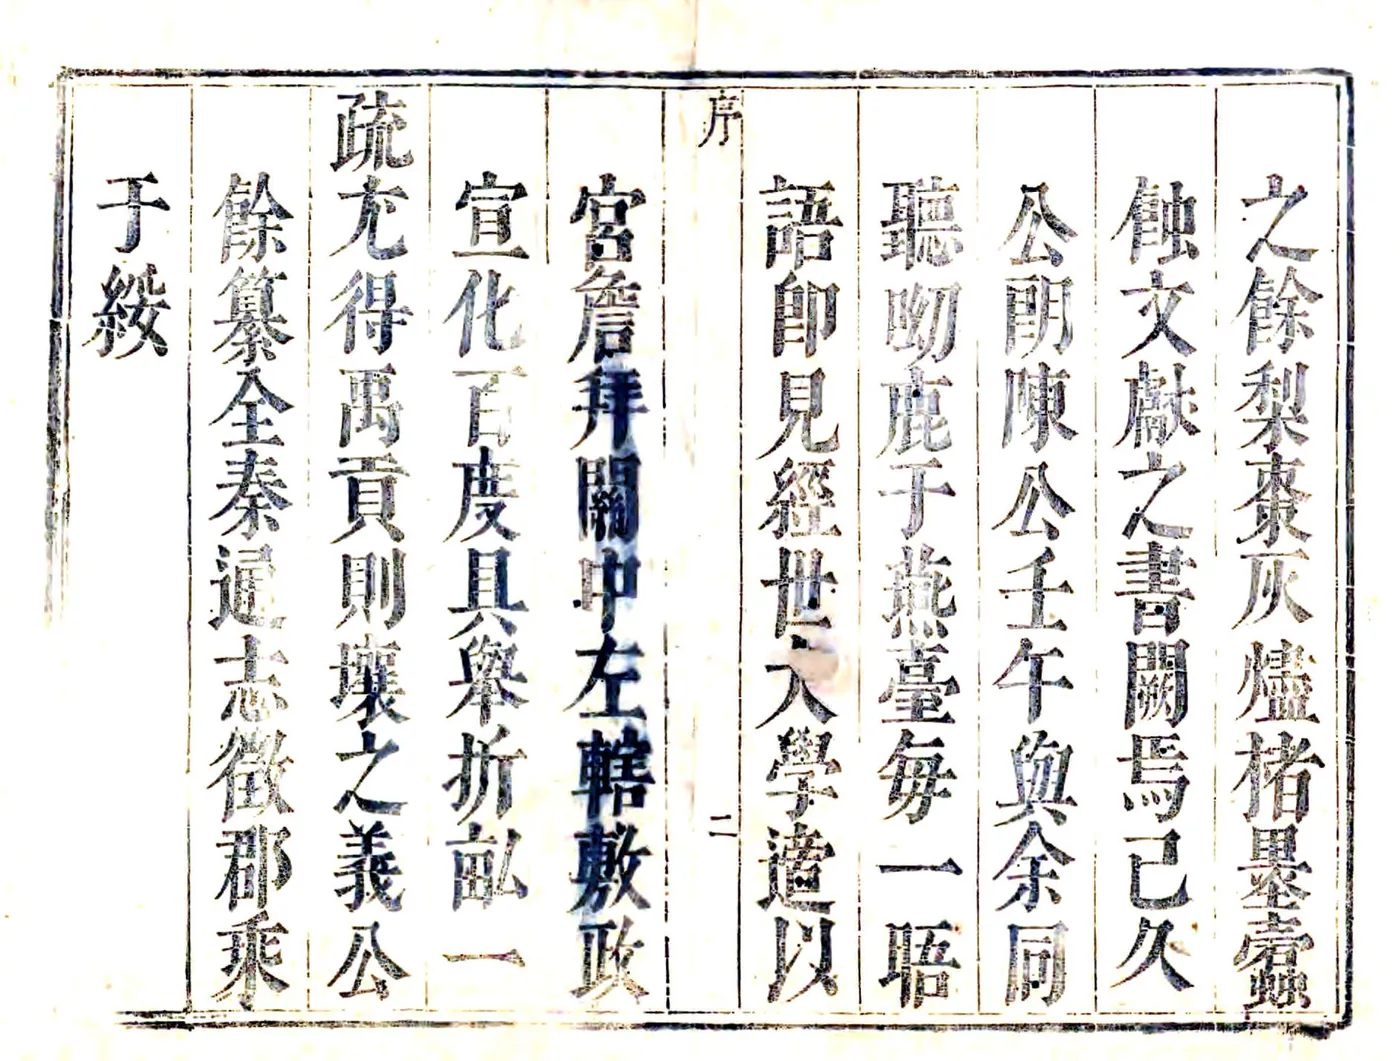 之餘梨棗灰燼楮墨蠹
蝕文獻之書闕焉已久
公朗陳公壬午與余同
聽呦鹿于燕臺每一晤
語即見經世大學遣以
序
二
宮詹拜闗中左轄敷政
宣化百度具舉折畝一
疏尤得禹貢則壤之義公
餘纂全秦通志徵郡乘
于綏